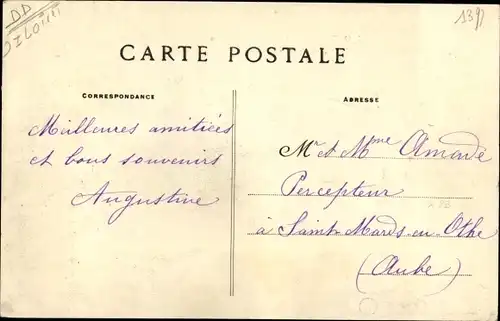 1397
CARTE POSTALE
CORRESPONDANCE
ADRESSE
Meilleures amitiées
et bons souvenirs
Augustine
Mr et Mme Amorde
Percepteur
à Saint-Mards-en-Othe
(Aube)